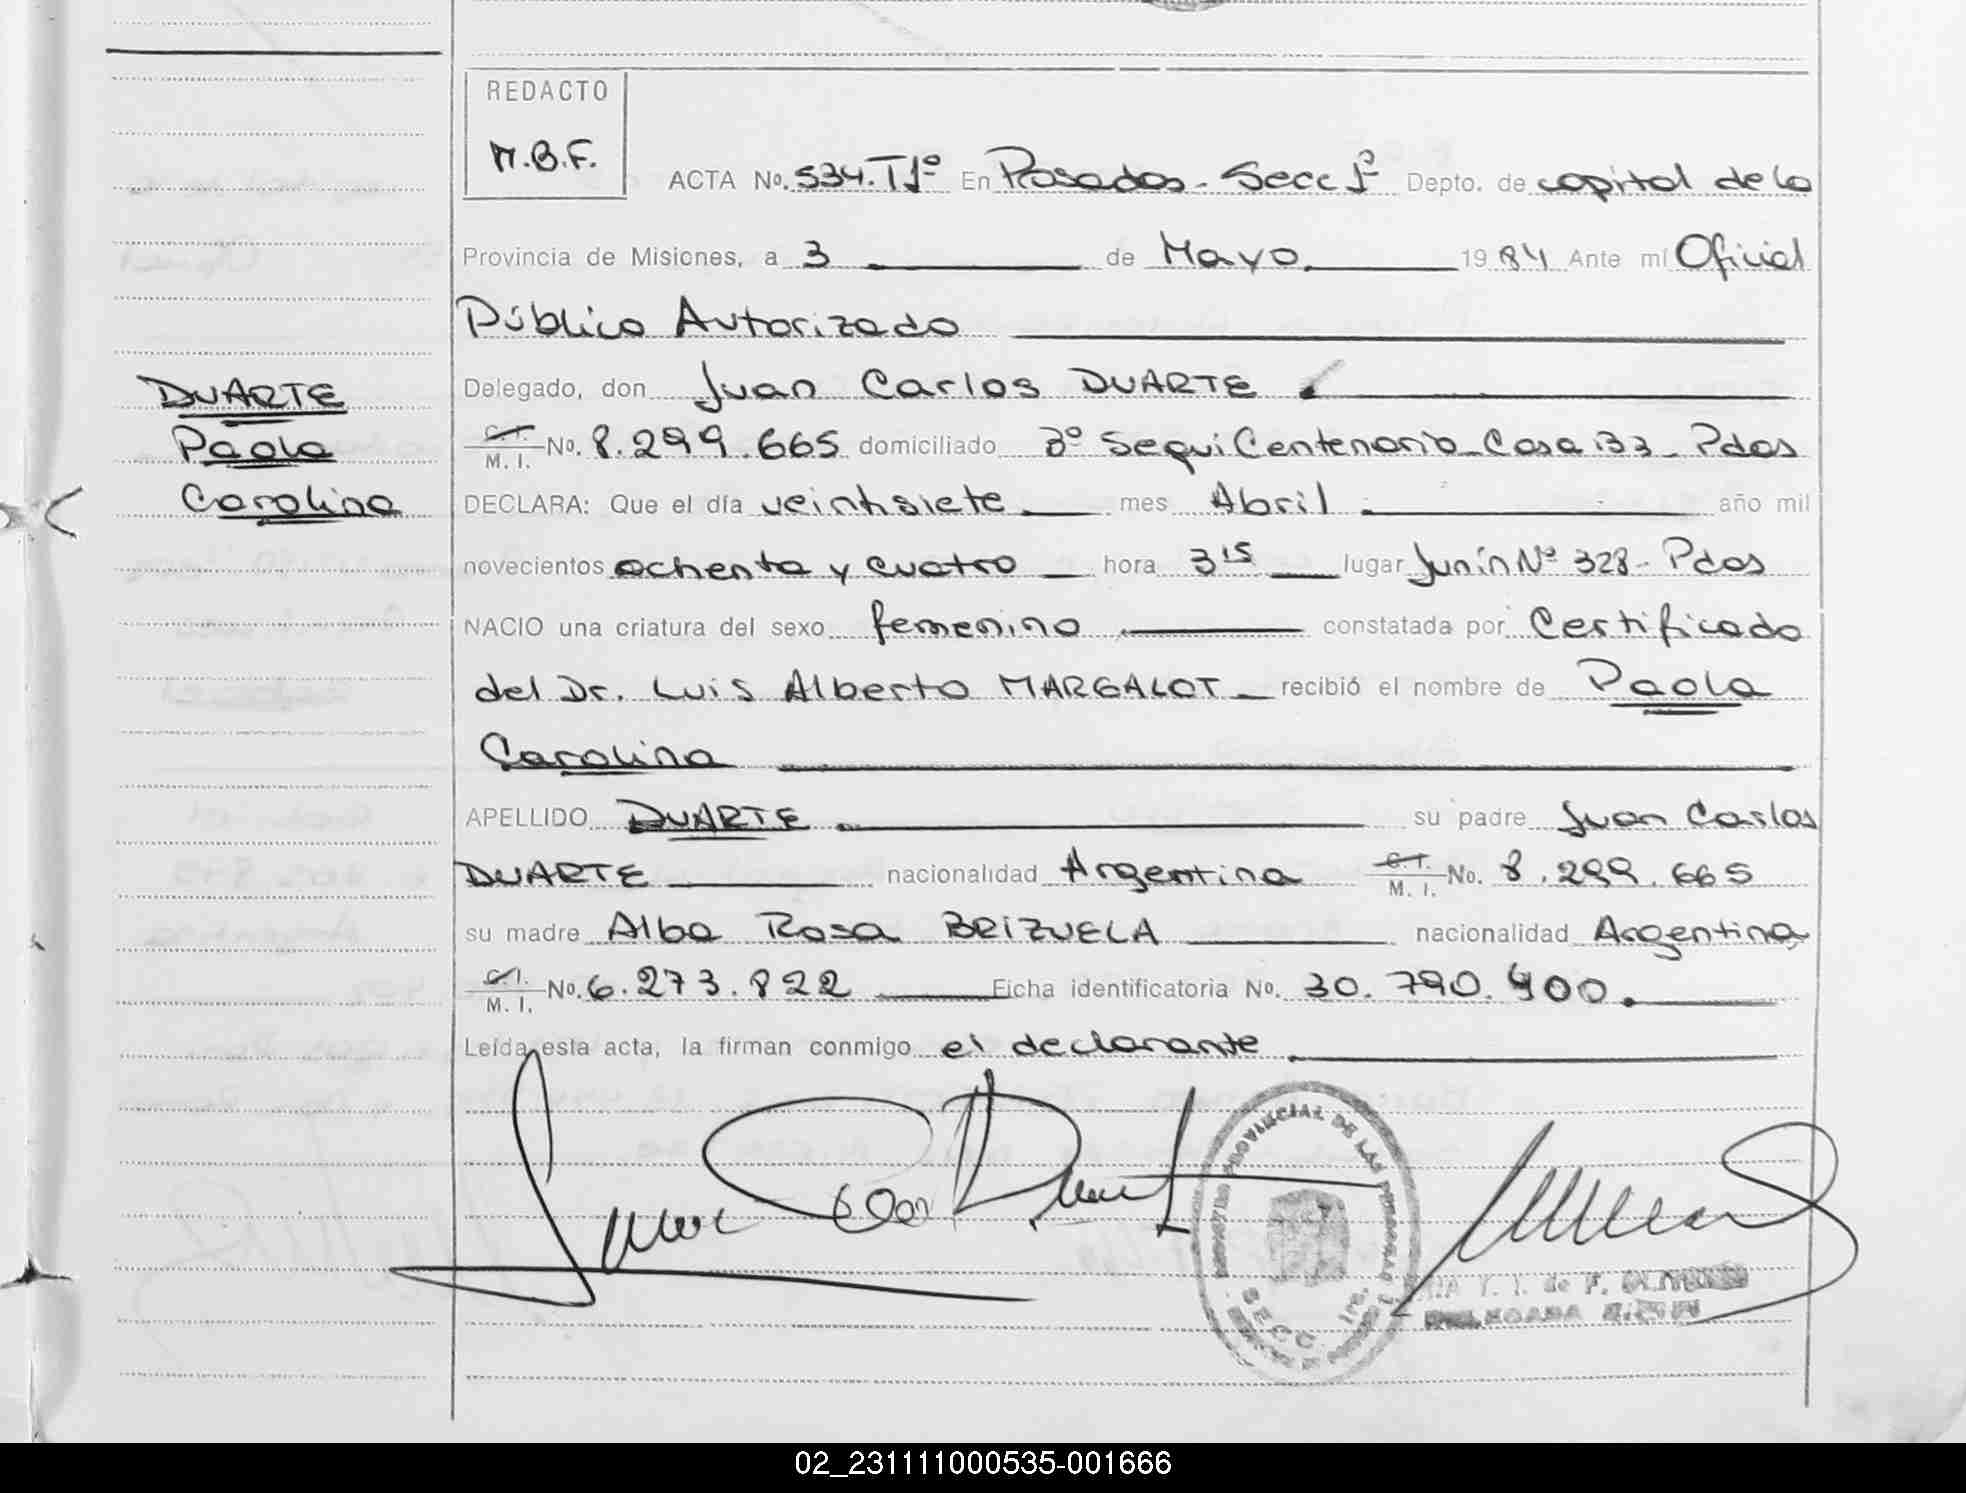 REDACTO
M.B.F.
ACTA No. 534. T1º En Posadas - Secc 1º Depto. de capital de la
Provincia de Misiones, a 3 de Mayo 1984 Ante mí Oficial
Público Autorizado
DUARTE
Paola
Carolina
Delegado, don Juan Carlos DUARTE
C.I. M.I. No. 8.299.665 domiciliado Bº SequiCentenario - Casa 133 - Pdas
DECLARA: Que el día veintisiete mes Abril año mil
novecientos ochenta y cuatro hora 3 15 lugar Junín Nº 328 - Pdas
NACIO una criatura del sexo femenino constatada por Certificado
del Dr. Luis Alberto MARGALOT recibió el nombre de Paola
Carolina
APELLIDO DUARTE su padre Juan Carlos
DUARTE nacionalidad Argentina C.I. M.I. No. 8.299.665
su madre Alba Rosa BRIZUELA nacionalidad Argentina
C.I. M.I. No. 6.273.822 Ficha identificatoria No. 30.790.400.
Leída esta acta, la firman conmigo el declarante
PROVINCIAL DE LAS PERSONAS
SECC. 1ra.
02_231111000535-001666